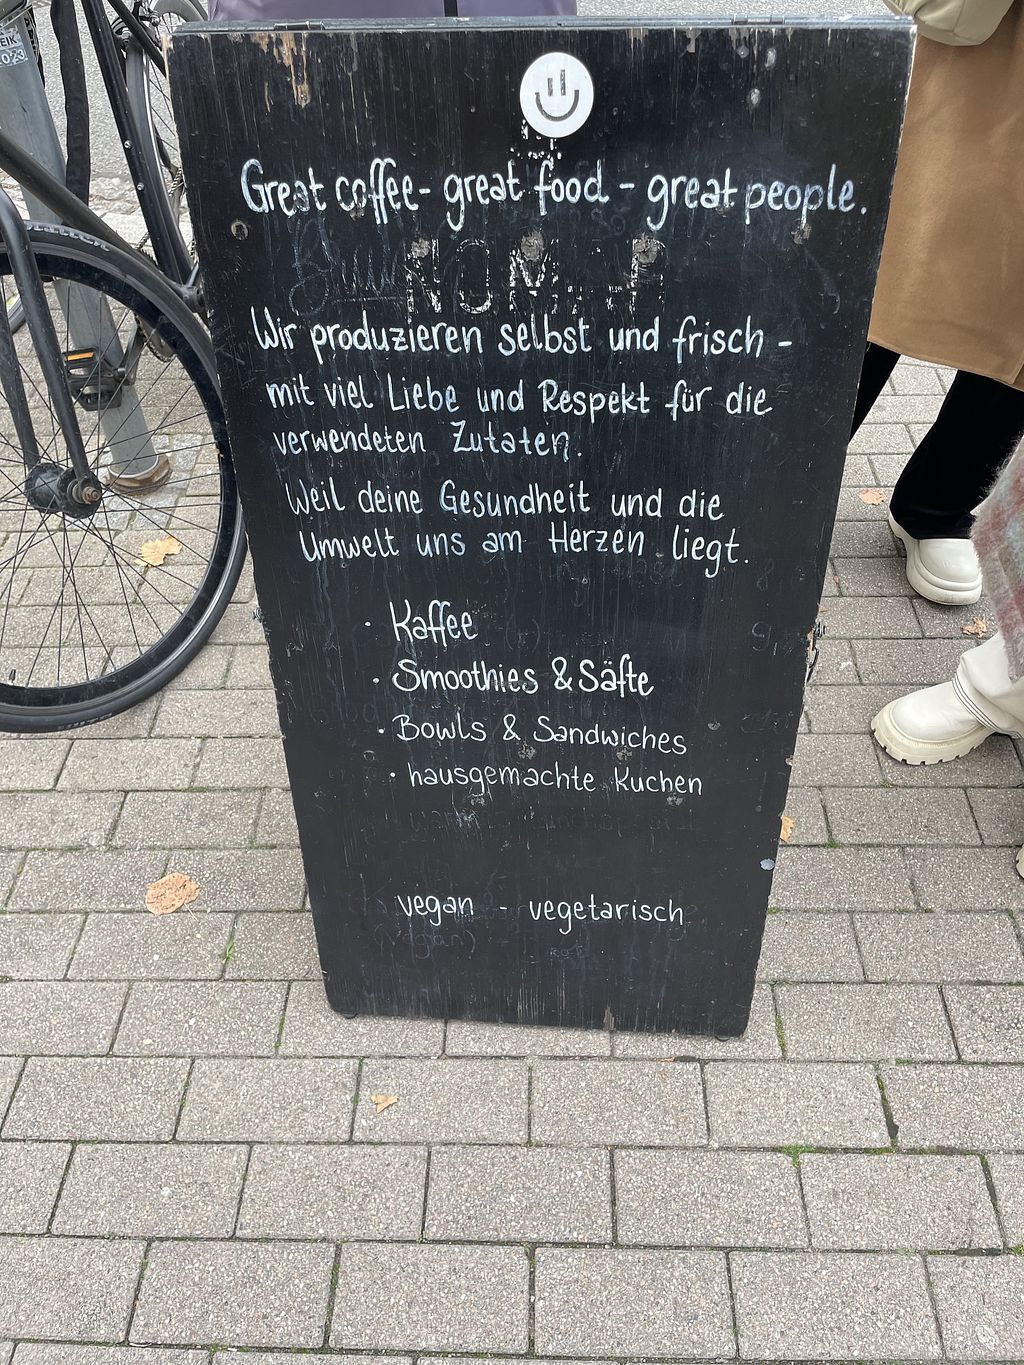 Great coffee - great food - great people.
Wir produzieren selbst und frisch -
mit viel Liebe und Respekt für die
verwendeten Zutaten.
Weil deine Gesundheit und die
Umwelt uns am Herzen liegt.
· Kaffee
· Smoothies & Säfte
· Bowls & Sandwiches
· hausgemachte Kuchen
vegan - vegetarisch
(vegan)